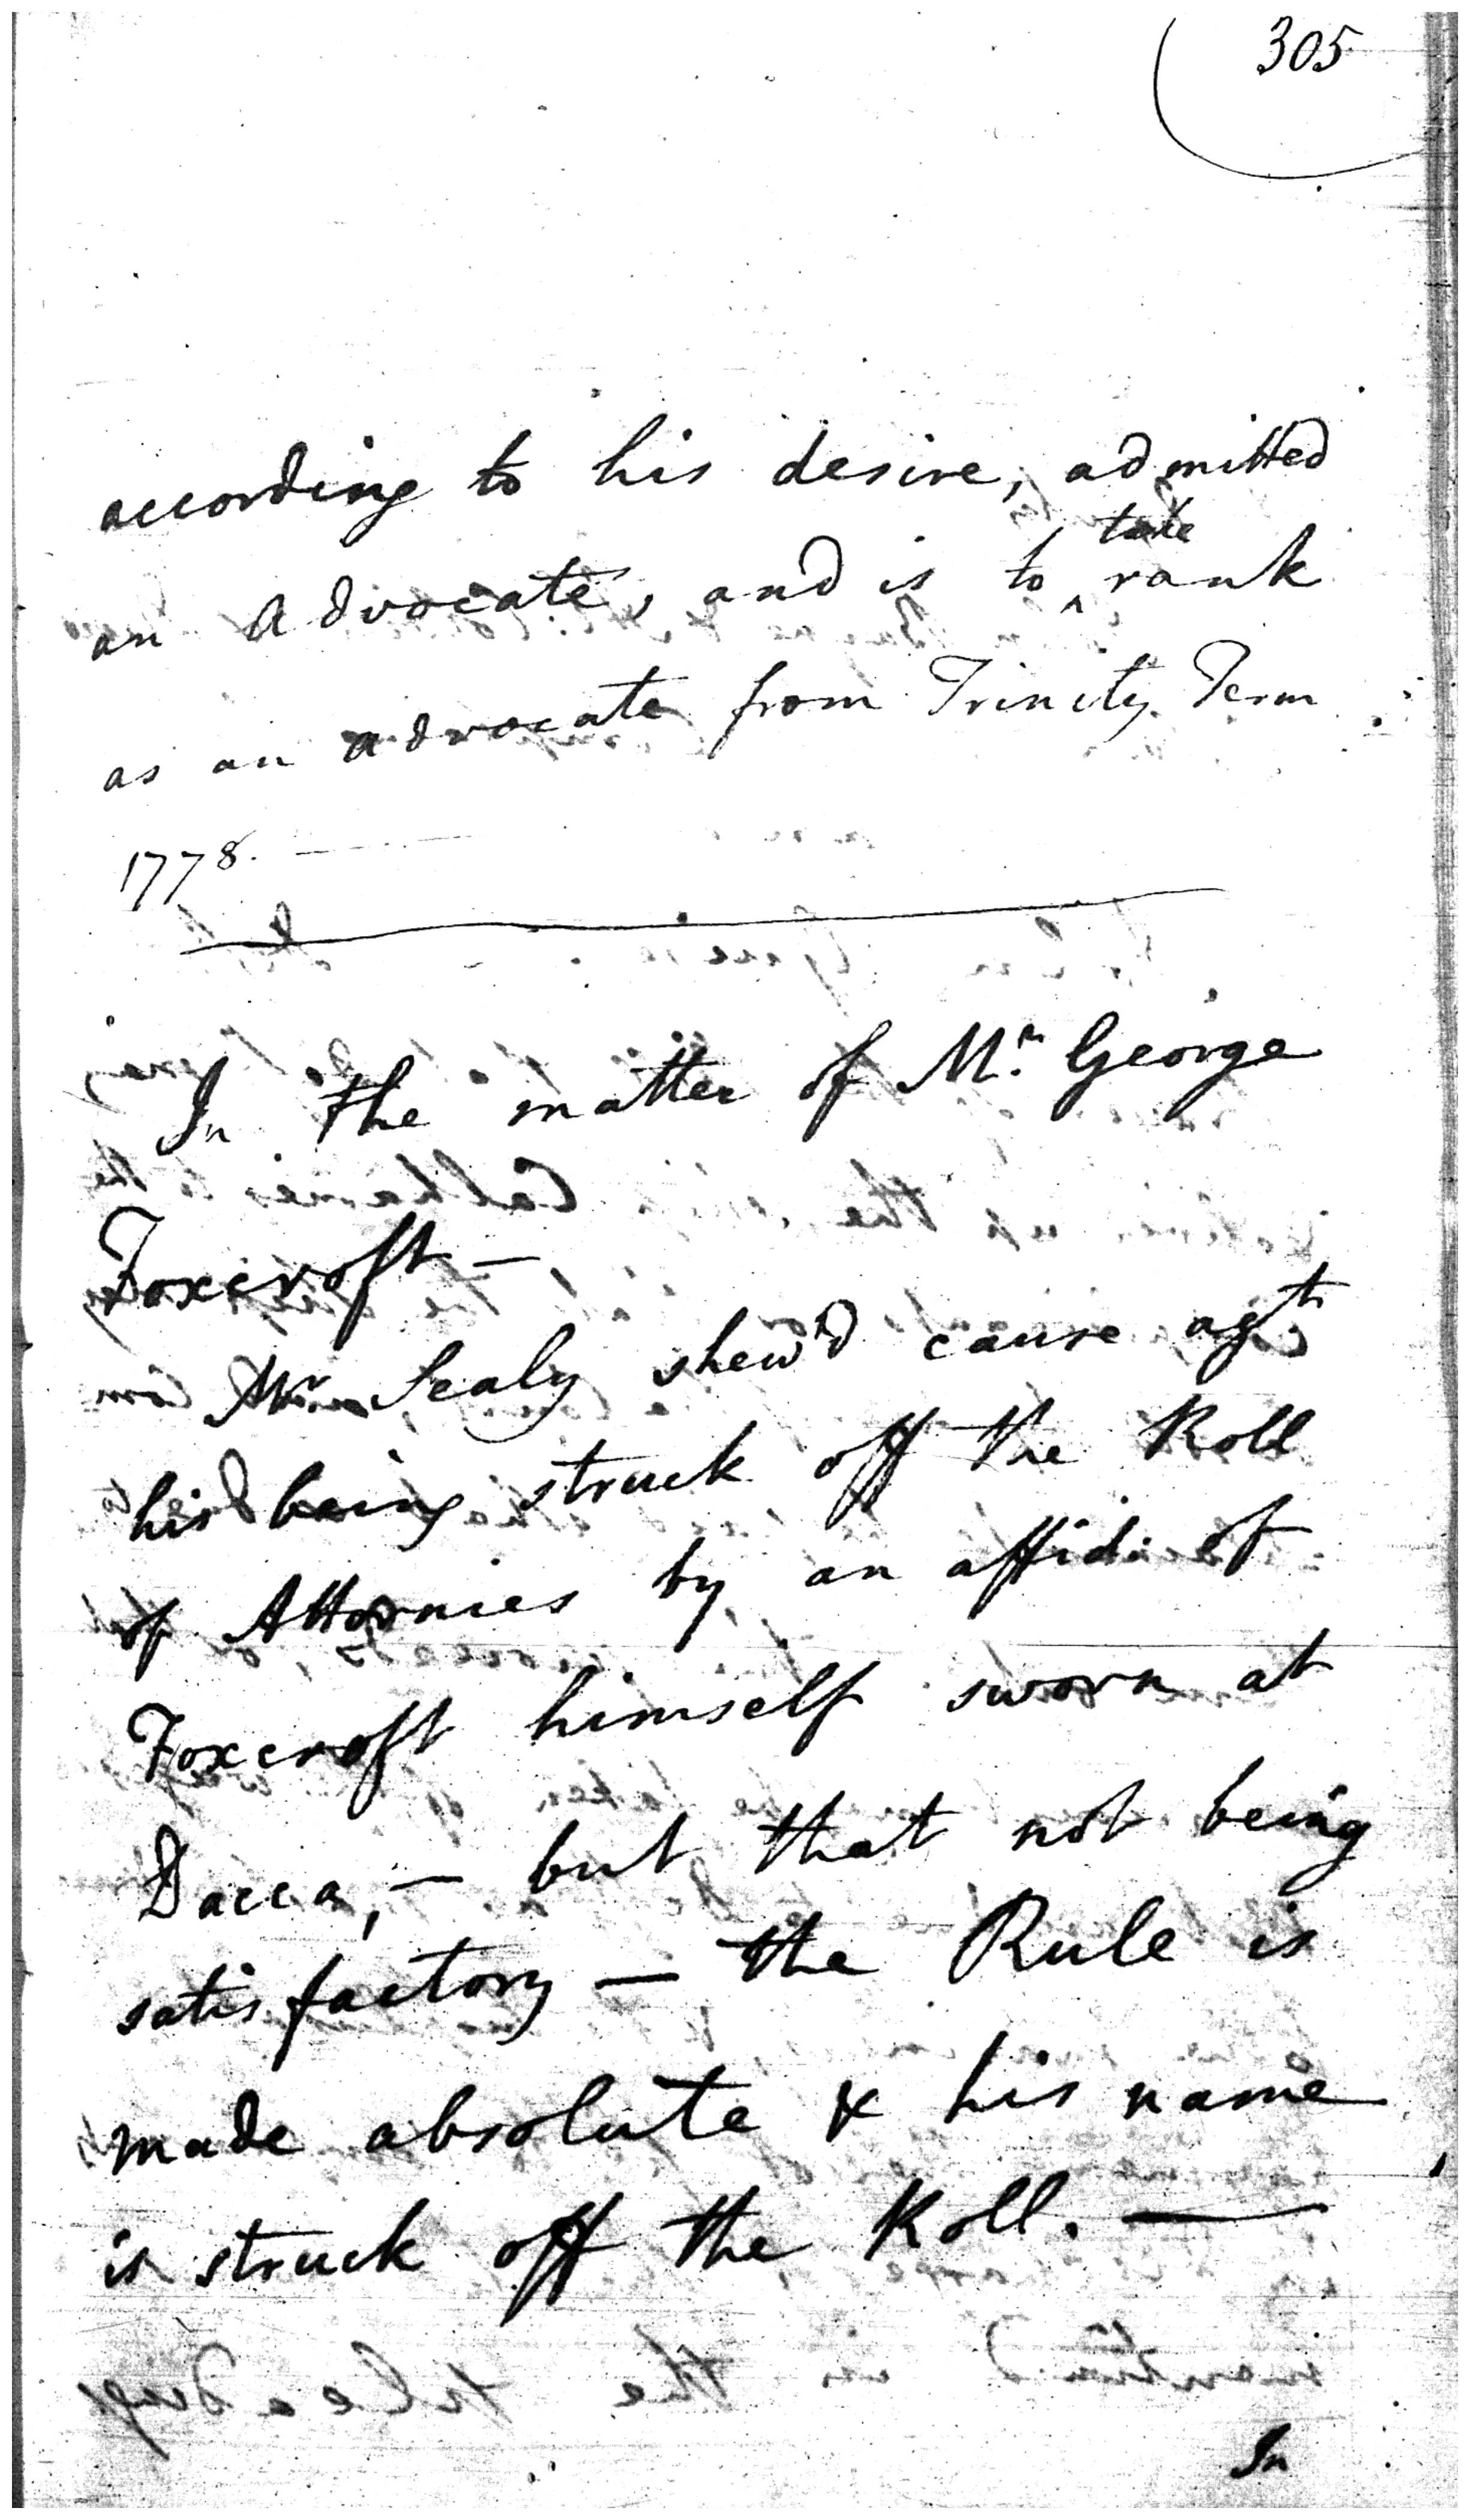 305
according to his desire, admitted
take
an Advocate, and is to ^ rank
as an advocate from Trinity Term
1778. —
In the matter of Mr. George
Foxcroft —
Mr. Sealy shew'd cause agt
his being struck off the Roll
of Attornies by an affidt of
Foxcroft himself sworn at
Dacca, — but that not being
satisfactory — the Rule is
made absolute & his name
is struck off the Roll. —
In